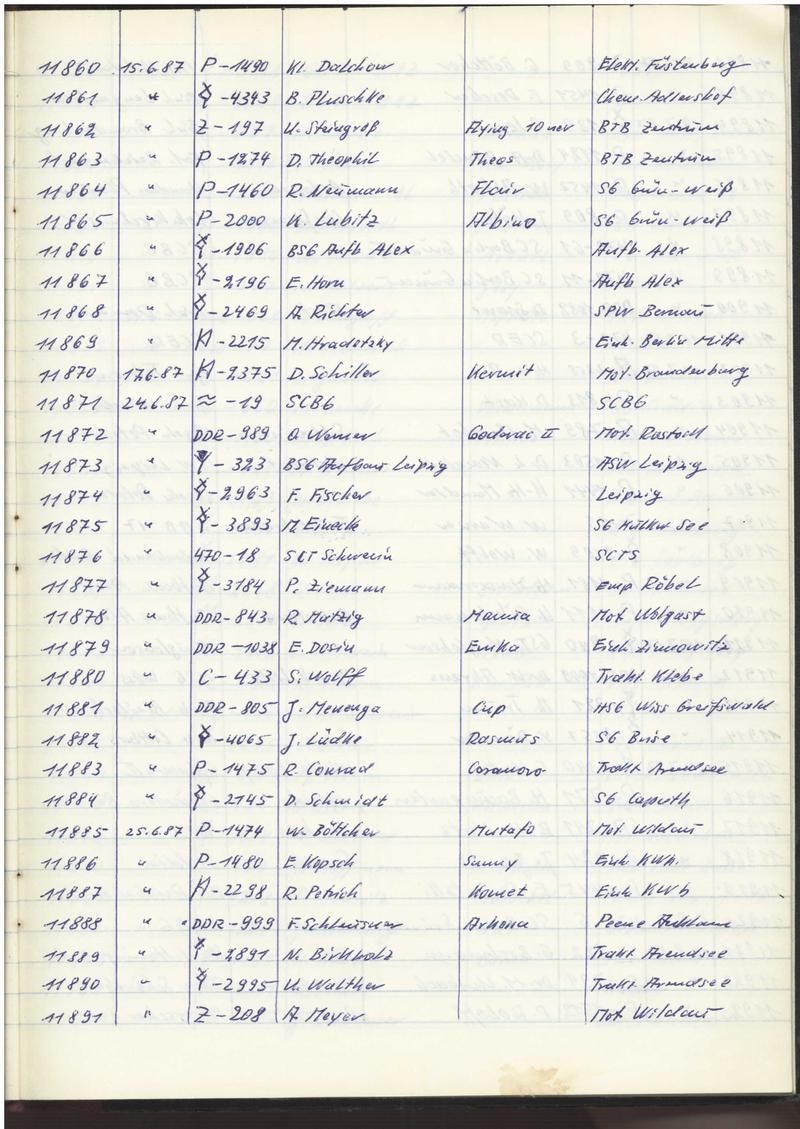 11860 15.6.87 P-1490 Kl. Dalchow Elekt. Füstenberg
11861 " -4343 B. Pluschke Chem. Adlershof
11862 " Z-197 U. Steingroß Flying 10ner BTB Zentrum
11863 " P-1274 D. Theophil Theos BTB Zentrum
11864 " P-1460 R. Neumann Flair SG Grün-Weiß
11865 " P-2000 K. Lubitz Albino SG Grün-Weiß
11866 " -1906 BSG Aufb Alex Aufb. Alex
11867 " -2196 E. Horn Aufb Alex
11868 " -2469 A. Richter SPW Bernau
11869 " -2215 M. Hradetzky Einh. Berlin Mitte
11870 17.6.87 -2375 D. Schiller Kermit Mot. Brandenburg
11871 24.6.87 ≈ -19 SCBG SCBG
11872 " DDR-989 O. Werner II Mot. Rostock
11873 " -323 BSG Aufbau Leipzig ASW Leipzig
11874 " -2963 F. Fischer Leipzig
11875 " -3893 M. Eineck SG See
11876 " 470-18 SCT Schwerin SCTS
11877 " -3184 P. Ziemann Emp Röbel
11878 " DDR-843 R. Matzig Mot Wolgast
11879 " DDR-1038 E. Dosin Emka Einh. Zinnowitz
11880 " C-433 S. Wolff Trakt. Klebe
11881 " DDR-805 J. Menenga Cup HSG Wiss Greifswald
11882 " -4065 J. Lüdke Rasmus SG Brise
11883 " P-1475 R. Conrad Casanova Trakt Arendsee
11884 " -2145 D. Schmidt SG Caputh
11885 25.6.87 P-1474 W. Böttcher Mustafa Mot. Wildau
11886 " P-1480 E. Kopsch Sunny Einh KWh.
11887 " -2298 R. Petrich Komet Einh KWh
11888 " DDR-999 F. Schleusner Arkona Peene Anklam
11889 " -2891 N. Birkholz Trakt. Arendsee
11890 " -2995 U. Walther Trakt. Arendsee
11891 " Z-208 A. Meyer Mot Wildau